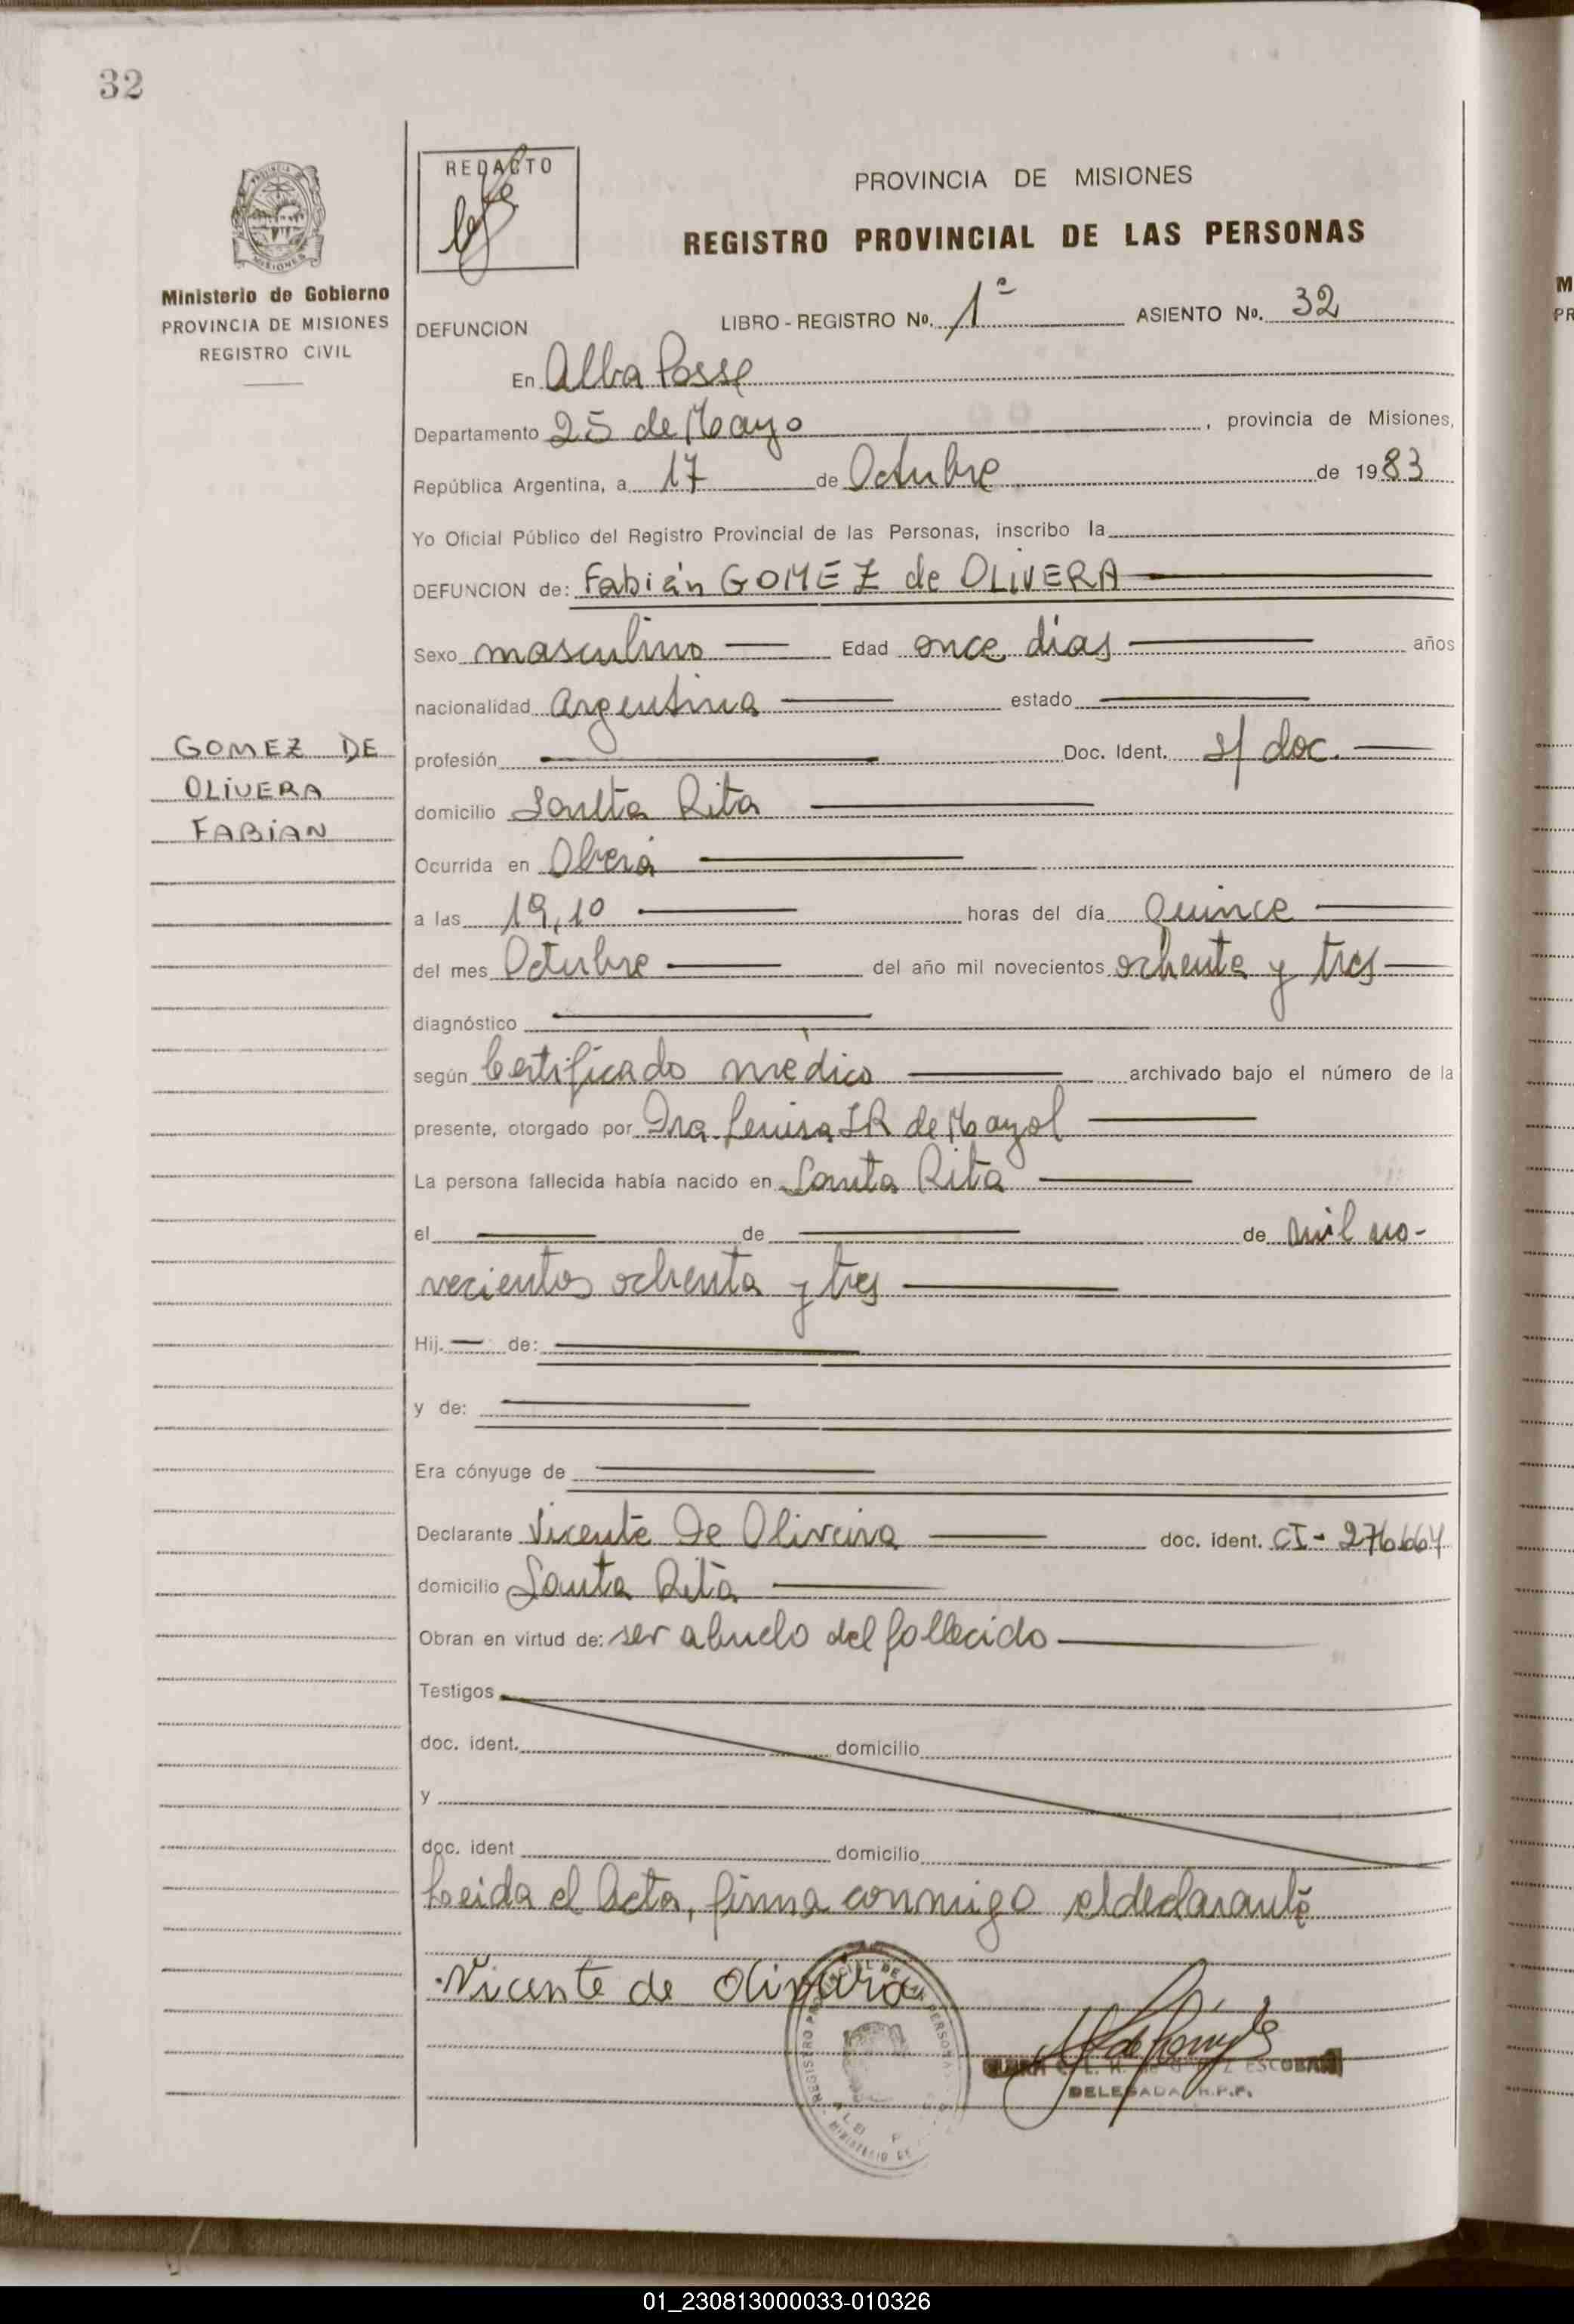 32
REDACTO
PROVINCIA DE MISIONES
REGISTRO PROVINCIAL DE LAS PERSONAS
Ministerio de Gobierno
PROVINCIA DE MISIONES
REGISTRO CIVIL
DEFUNCION LIBRO - REGISTRO Nº. 1º ASIENTO Nº. 32
En Alba Posse
Departamento 25 de Mayo, provincia de Misiones,
República Argentina, a 17 de Octubre de 1983
Yo Oficial Público del Registro Provincial de las Personas, inscribo la
DEFUNCION de: Fabián GOMEZ de OLIVERA
Sexo masculino Edad once dias años
nacionalidad argentina estado
GOMEZ DE
OLIVERA
FABIAN
profesión Doc. Ident. s/ doc.
domicilio Santa Rita
Ocurrida en Oberá
a las 19,10 horas del día quince
del mes Octubre del año mil novecientos ochenta y tres
diagnóstico
según Certificado médico archivado bajo el número de la
presente, otorgado por Dra de Mayol
La persona fallecida había nacido en Santa Rita
el de de mil no-
vecientos ochenta y tres
Hij. de:
y de:
Era cónyuge de
Declarante Vicente De Oliveira doc. ident. CI - 276.664
domicilio Santa Rita
Obran en virtud de: ser abuelo del fallecido
Testigos
doc. ident. domicilio
y
doc. ident domicilio
Leida el Acta, firma conmigo el declarante
Vicente de Oliveira
ESCOBAR
DELEGADA R.P.P.
01_230813000033-010326